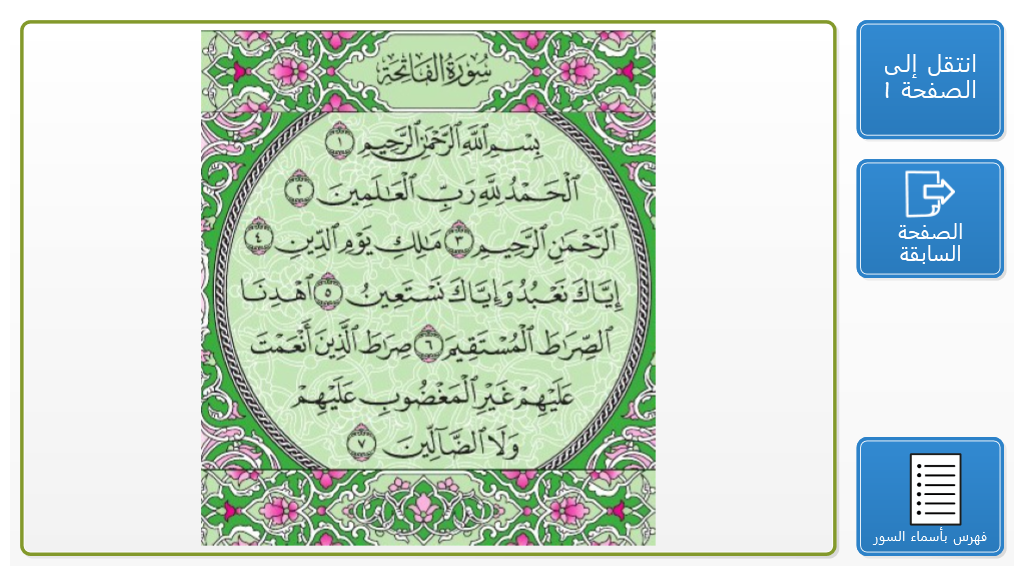 سُورَةُ الفَاتِحَةِ
بِسْمِ ٱللَّهِ ٱلرَّحْمَٰنِ ٱلرَّحِيمِ ١
ٱلْحَمْدُ لِلَّهِ رَبِّ ٱلْعَـٰلَمِينَ ٢
ٱلرَّحْمَٰنِ ٱلرَّحِيمِ ٣ مَـٰلِكِ يَوْمِ ٱلدِّينِ ٤
إِيَّاكَ نَعْبُدُ وَإِيَّاكَ نَسْتَعِينُ ٥ ٱهْدِنَا
ٱلصِّرَٰطَ ٱلْمُسْتَقِيمَ ٦ صِرَٰطَ ٱلَّذِينَ أَنْعَمْتَ
عَلَيْهِمْ غَيْرِ ٱلْمَغْضُوبِ عَلَيْهِمْ
وَلَا ٱلضَّآلِّينَ ٧
انتقل إلى
الصفحة ١
الصفحة
السابقة
فهرس بأسماء السور